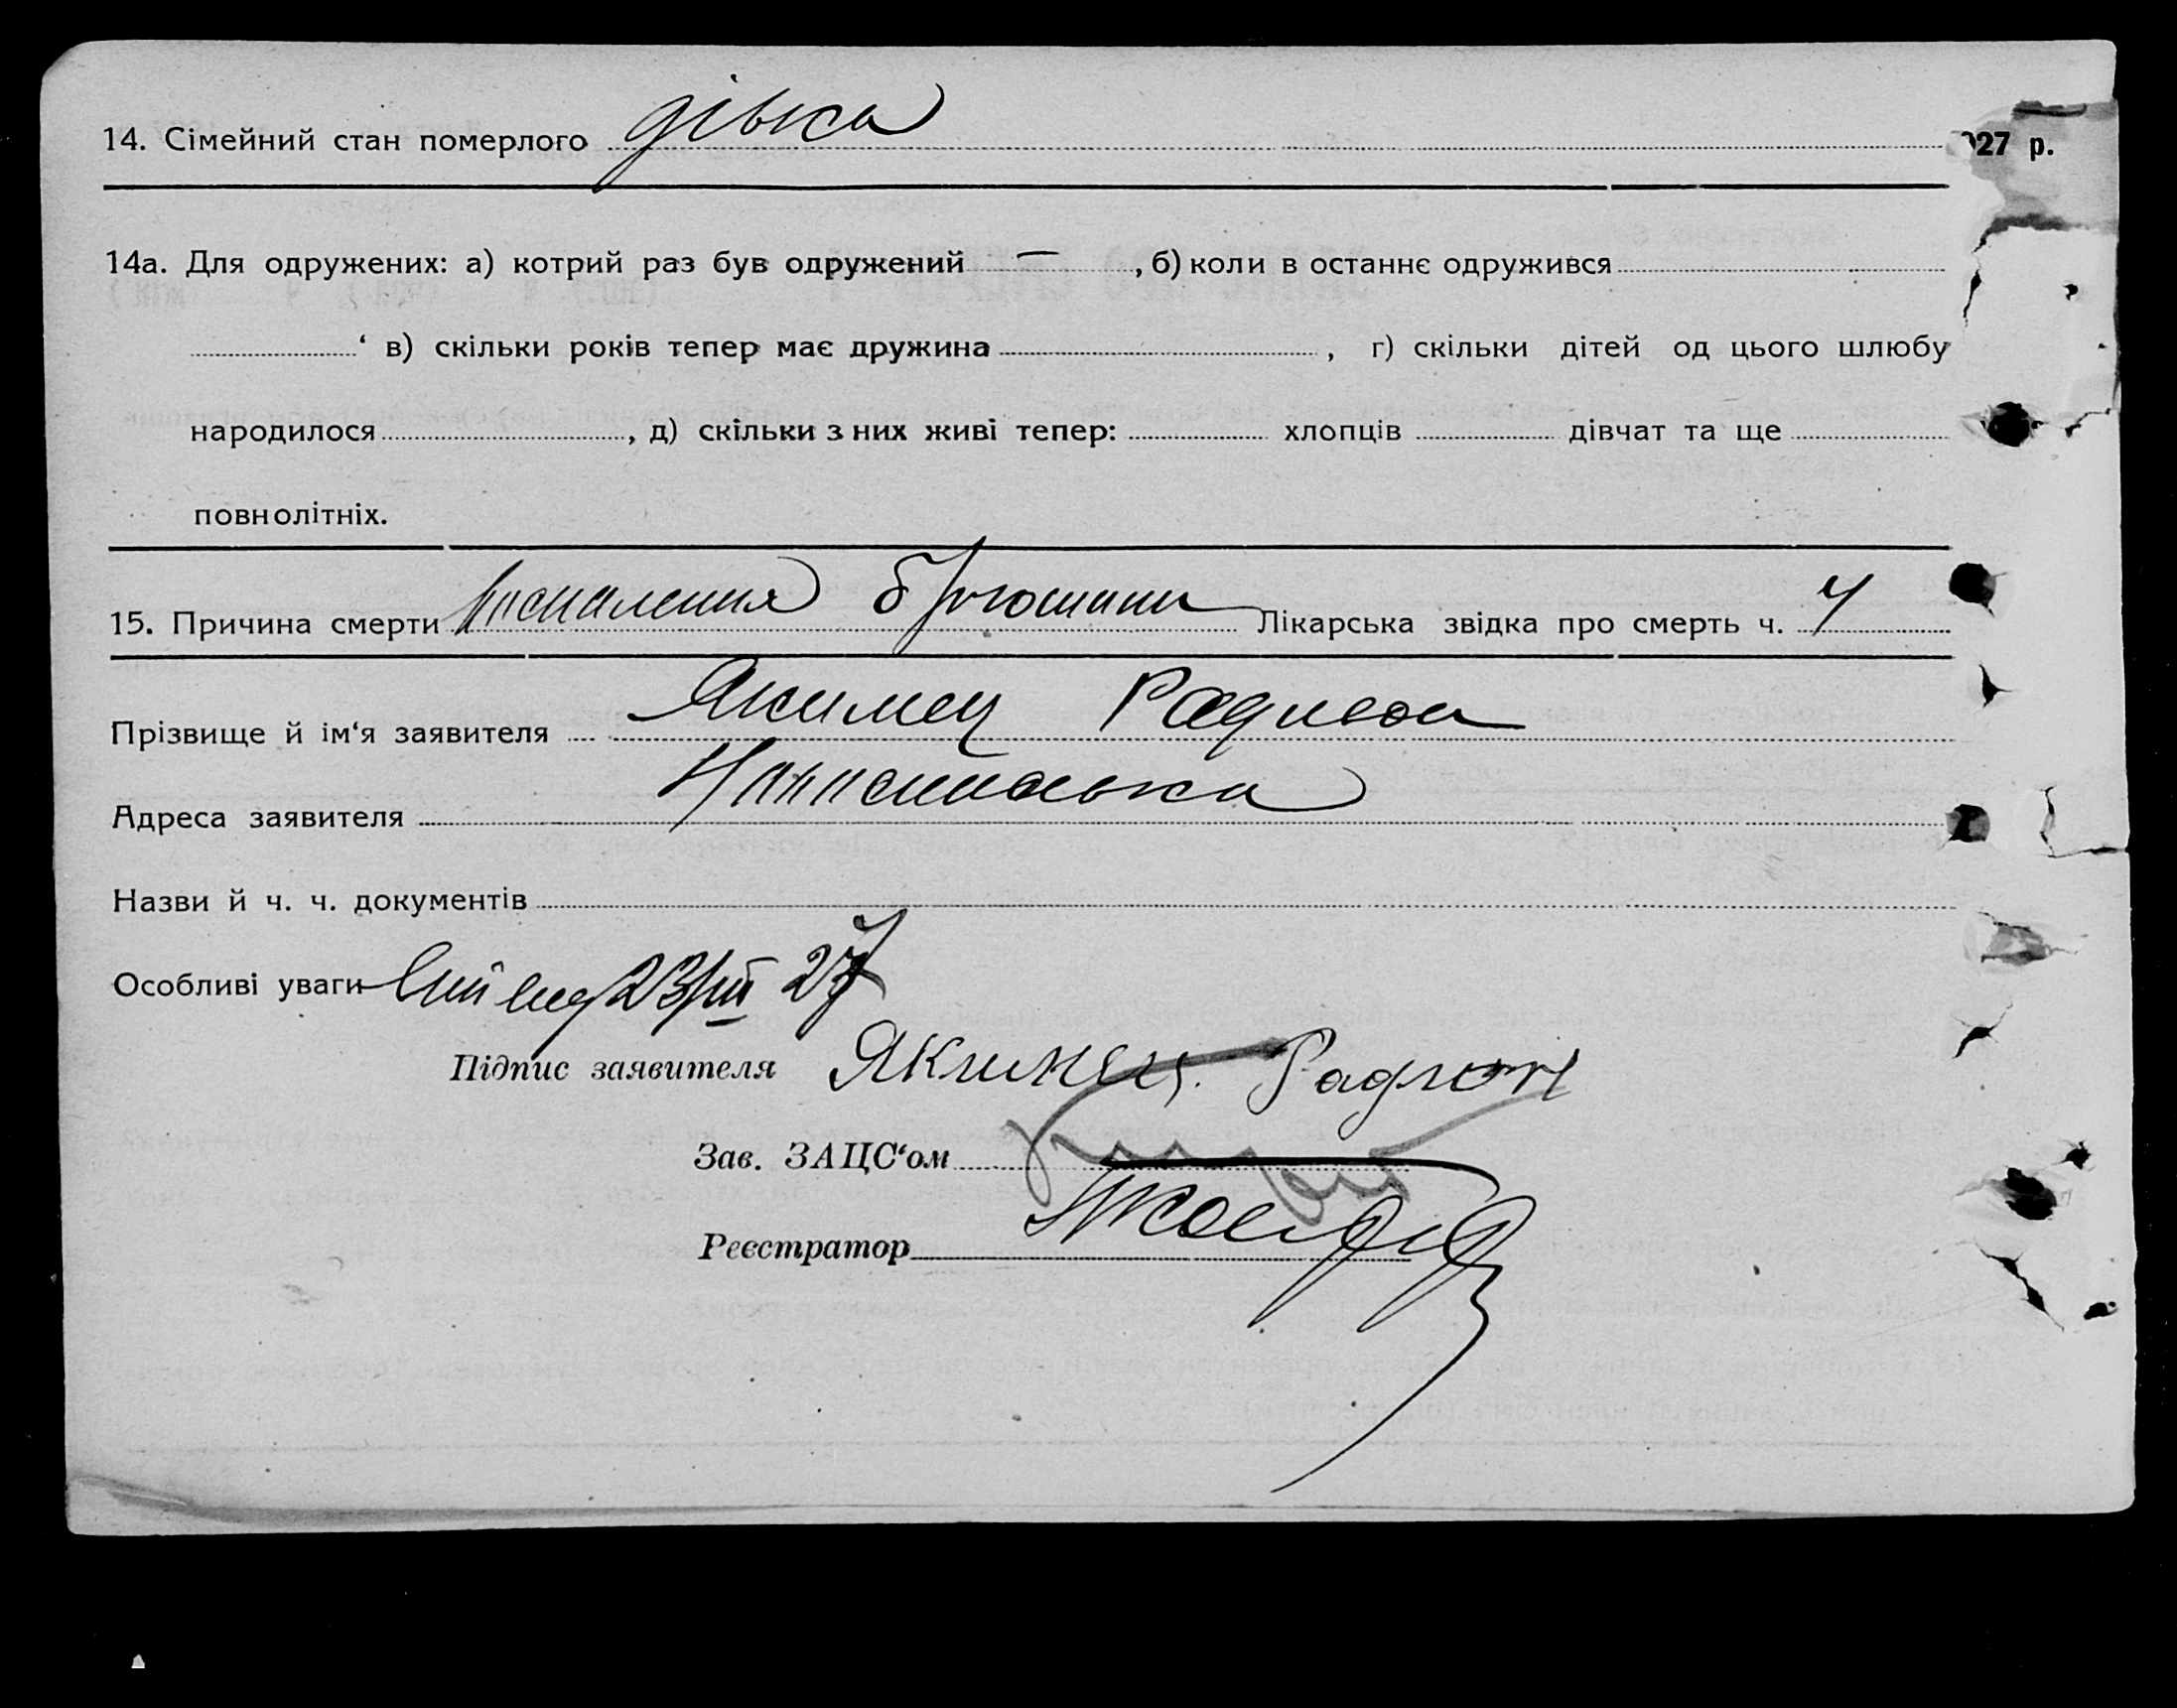 14. Сімейний стан померлого дівка
027 р.
14а. Для одружених: а) котрий раз був одружений — , б) коли в останнє одружився
‘ в) скільки років тепер має дружина , г) скільки дітей од цього шлюбу
народилося , д) скільки з них живі тепер: хлопців дівчат та ще
повнолітніх.
15. Причина смерти Лікарська звідка про смерть ч. 4
Прізвище й ім‘я заявителя Якимец Радион
Адреса заявителя
Назви й ч. ч. документів
Особливі уваги 23/III 27
Підпис заявителя Якимец. Радион
Зав. ЗАЦС‘ом
Реєстратор